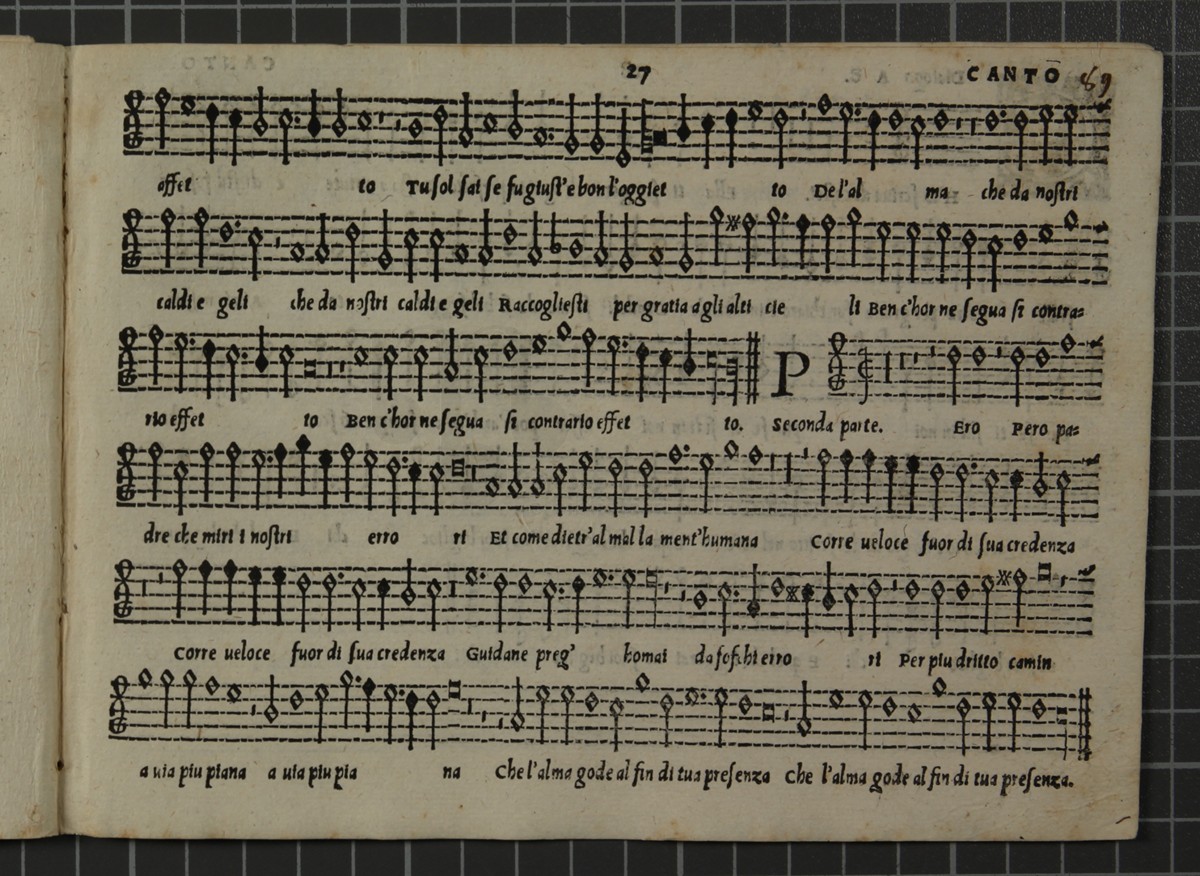 27 CANTO 89
affet to Tu sol sai se fu giust'e bon l'oggiet to De l'al ma che da nostri
caldi e geli che da nostri caldi e geli Raccogliesti per gratia a gli alti cie li Ben c'hor ne segua si contra=
rio effet to Ben c'hor ne segua si contrario effet to. Seconda parte. P Ero Pero pa=
dre che miri i nostri erro ri Et come dietr'al mal la ment'humana Corre ueloce fuor di sua credenza
Corre ueloce fuor di sua credenza Guidane preg' homai da foschi erro ri Per piu dritto camin
a uia piu piana a uia piu pia na Che l'alma gode al fin di tua presenza Che l'alma gode al fin di tua presenza.